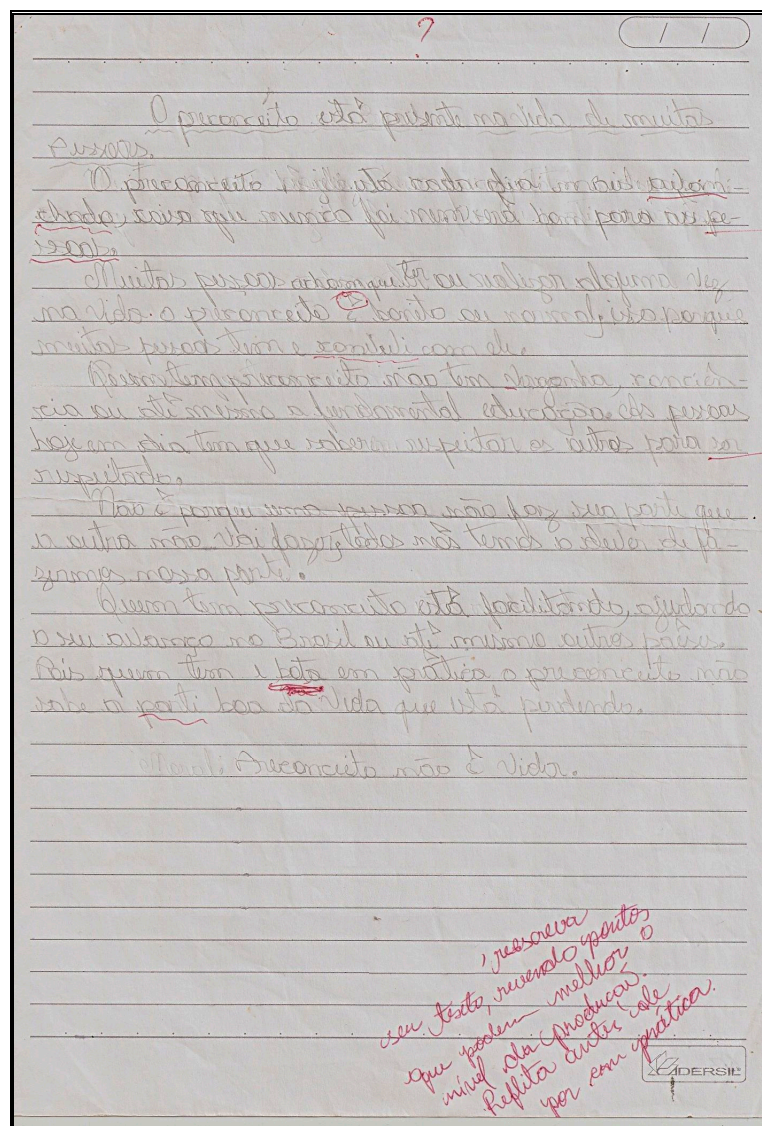 ?
/ /
O preconceito está presente na vida de muitas
pessoas.
O preconceito hoje está cada dia mais
chado, coisa que nunca foi nem será bom para as pe-
ssoas.
Muitas pessoas acham que ter ou realizar alguma vez
na vida o preconceito é bonito ou normal, isso porque
muitas pessoas tem e convili com ele.
Quem tem preconceito não tem vergonha, conciên-
cia ou até mesmo a fundamental educação. As pessoas
hoje em dia tem que saber respeitar os outros para ser
respeitado.
Não é porque uma pessoa não faz sua parte que
a outra não vai fazer, todos nós temos o dever de fa-
zermos nossa parte.
Quem tem preconceito está facilitando, ajudando
o seu avanço no Brasil ou até mesmo outros países.
Pois quem tem e bota em prática o preconceito não
sabe a parti boa da vida que está perdendo.
Moral: Preconceito não é vida.
, reescreva
seu texto, revendo pontos
que podem melhor o
nível da produção.
Reflita antes de
por em prática.
CADERSIL